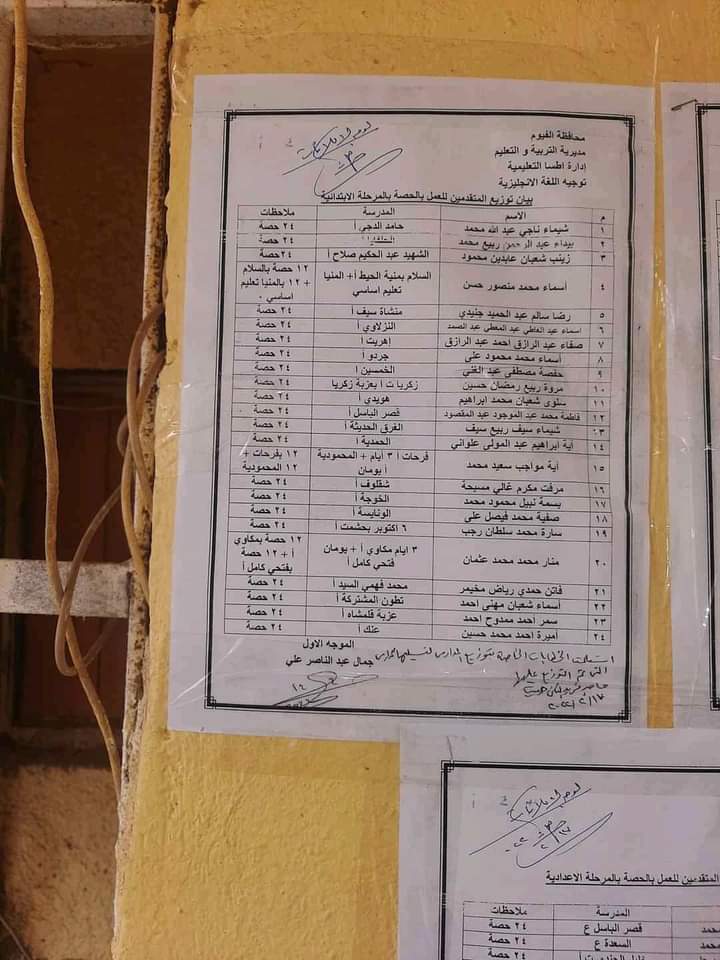 محافظة الفيوم
مديرية التربية و التعليم
إدارة اطسا التعليمية
توجيه اللغة الانجليزية
لوحة الاعلانات
بيان توزيع المتقدمين للعمل بالحصة بالمرحلة الابتدائية
م الاسم المدرسة ملاحظات
١ شيماء ناجي عبد الله محمد حامد الدجي أ ٢٤ حصة
٢ بيداء عبد الرحمن ربيع محمد ٢٤ حصة
٣ زينب شعبان عابدين محمود الشهيد عبد الحكيم صلاح أ ٢٤حصة
٤ أسماء محمد منصور حسن السلام بمنية الحيط أ+ المنيا تعليم اساسي ١٢ حصة بالسلام + ١٢ بالمنيا تعليم اساسي .
٥ رضا سالم عبد الحميد جنيدي منشاة سيف أ ٢٤ حصة
٦ اسماء عبد العاطي عبد المعطي عبد الصمد النزلاوي أ ٢٤ حصة
٧ صفاء عبد الرازق احمد عبد الرازق إهريت أ ٢٤ حصة
٨ أسماء محمد محمود على جردو أ ٢٤ حصة
٩ حفصة مصطفى عبد الغني الخمسين أ ٢٤ حصة
١٠ مروة ربيع رمضان حسين زكريا ت أ بعزبة زكريا ٢٤ حصة
١١ سلوى شعبان محمد ابراهيم هويدي أ ٢٤ حصة
١٢ فاطمة محمد عبد الموجود عبد المقصود قصر الباسل أ ٢٤ حصة
١٣ شيماء سيف ربيع سيف الغرق الحديثة أ ٢٤ حصة
١٤ آية ابراهيم عبد المولى علواني الحمدية أ ٢٤ حصة
١٥ آية مواجب سعيد محمد فرحات أ ٣ أيام + المحمودية أ يومان ١٢ بفرحات + ١٢ المحمودية
١٦ مرفت مكرم غالي مسيحة شقلوف أ ٢٤ حصة
١٧ بسمة نبيل محمود محمد الخوجة أ ٢٤ حصة
١٨ صفية محمد فيصل على الونايسة أ ٢٤ حصة
١٩ سارة محمد سلطان رجب ٦ اكتوبر بحشمت أ ٢٤ حصة
٢٠ منار محمد محمد عثمان ٣ ايام مكاوي أ + يومان فتحي كامل أ ١٢ حصة بمكاوي أ + ١٢ حصة بفتحي كامل أ
٢١ فاتن حمدي رياض مخيمر محمد فهمي السيد أ ٢٤ حصة
٢٢ أسماء شعبان مهنى احمد تطون المشتركة أ ٢٤ حصة
٢٣ سمر احمد ممدوح احمد عزبة قلمشاه أ ٢٤ حصة
٢٤ أميرة احمد محمد حسين عنك أ ٢٤ حصة
الموجه الاول
جمال عبد الناصر علي
استلمت الخطابات الخاصة بتوزيع المدارس
التي تم التوزيع عليها
لوحة الاعلانات
المتقدمين للعمل بالحصة بالمرحلة الاعدادية
المدرسة ملاحظات
محمد قصر الباسل ع ٢٤ حصة
محمد السعدة ع ٢٤ حصة
٢٤ حصة